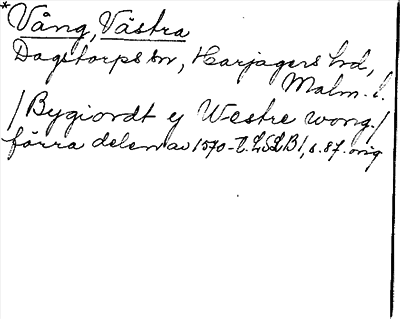 *Vång, Västra
Dagstorps sn, Harjagers hd,
Malm. l.
/Bygiordt ij Westre wong./
förra delen av 1570-t. LSLB1, s. 87. orig